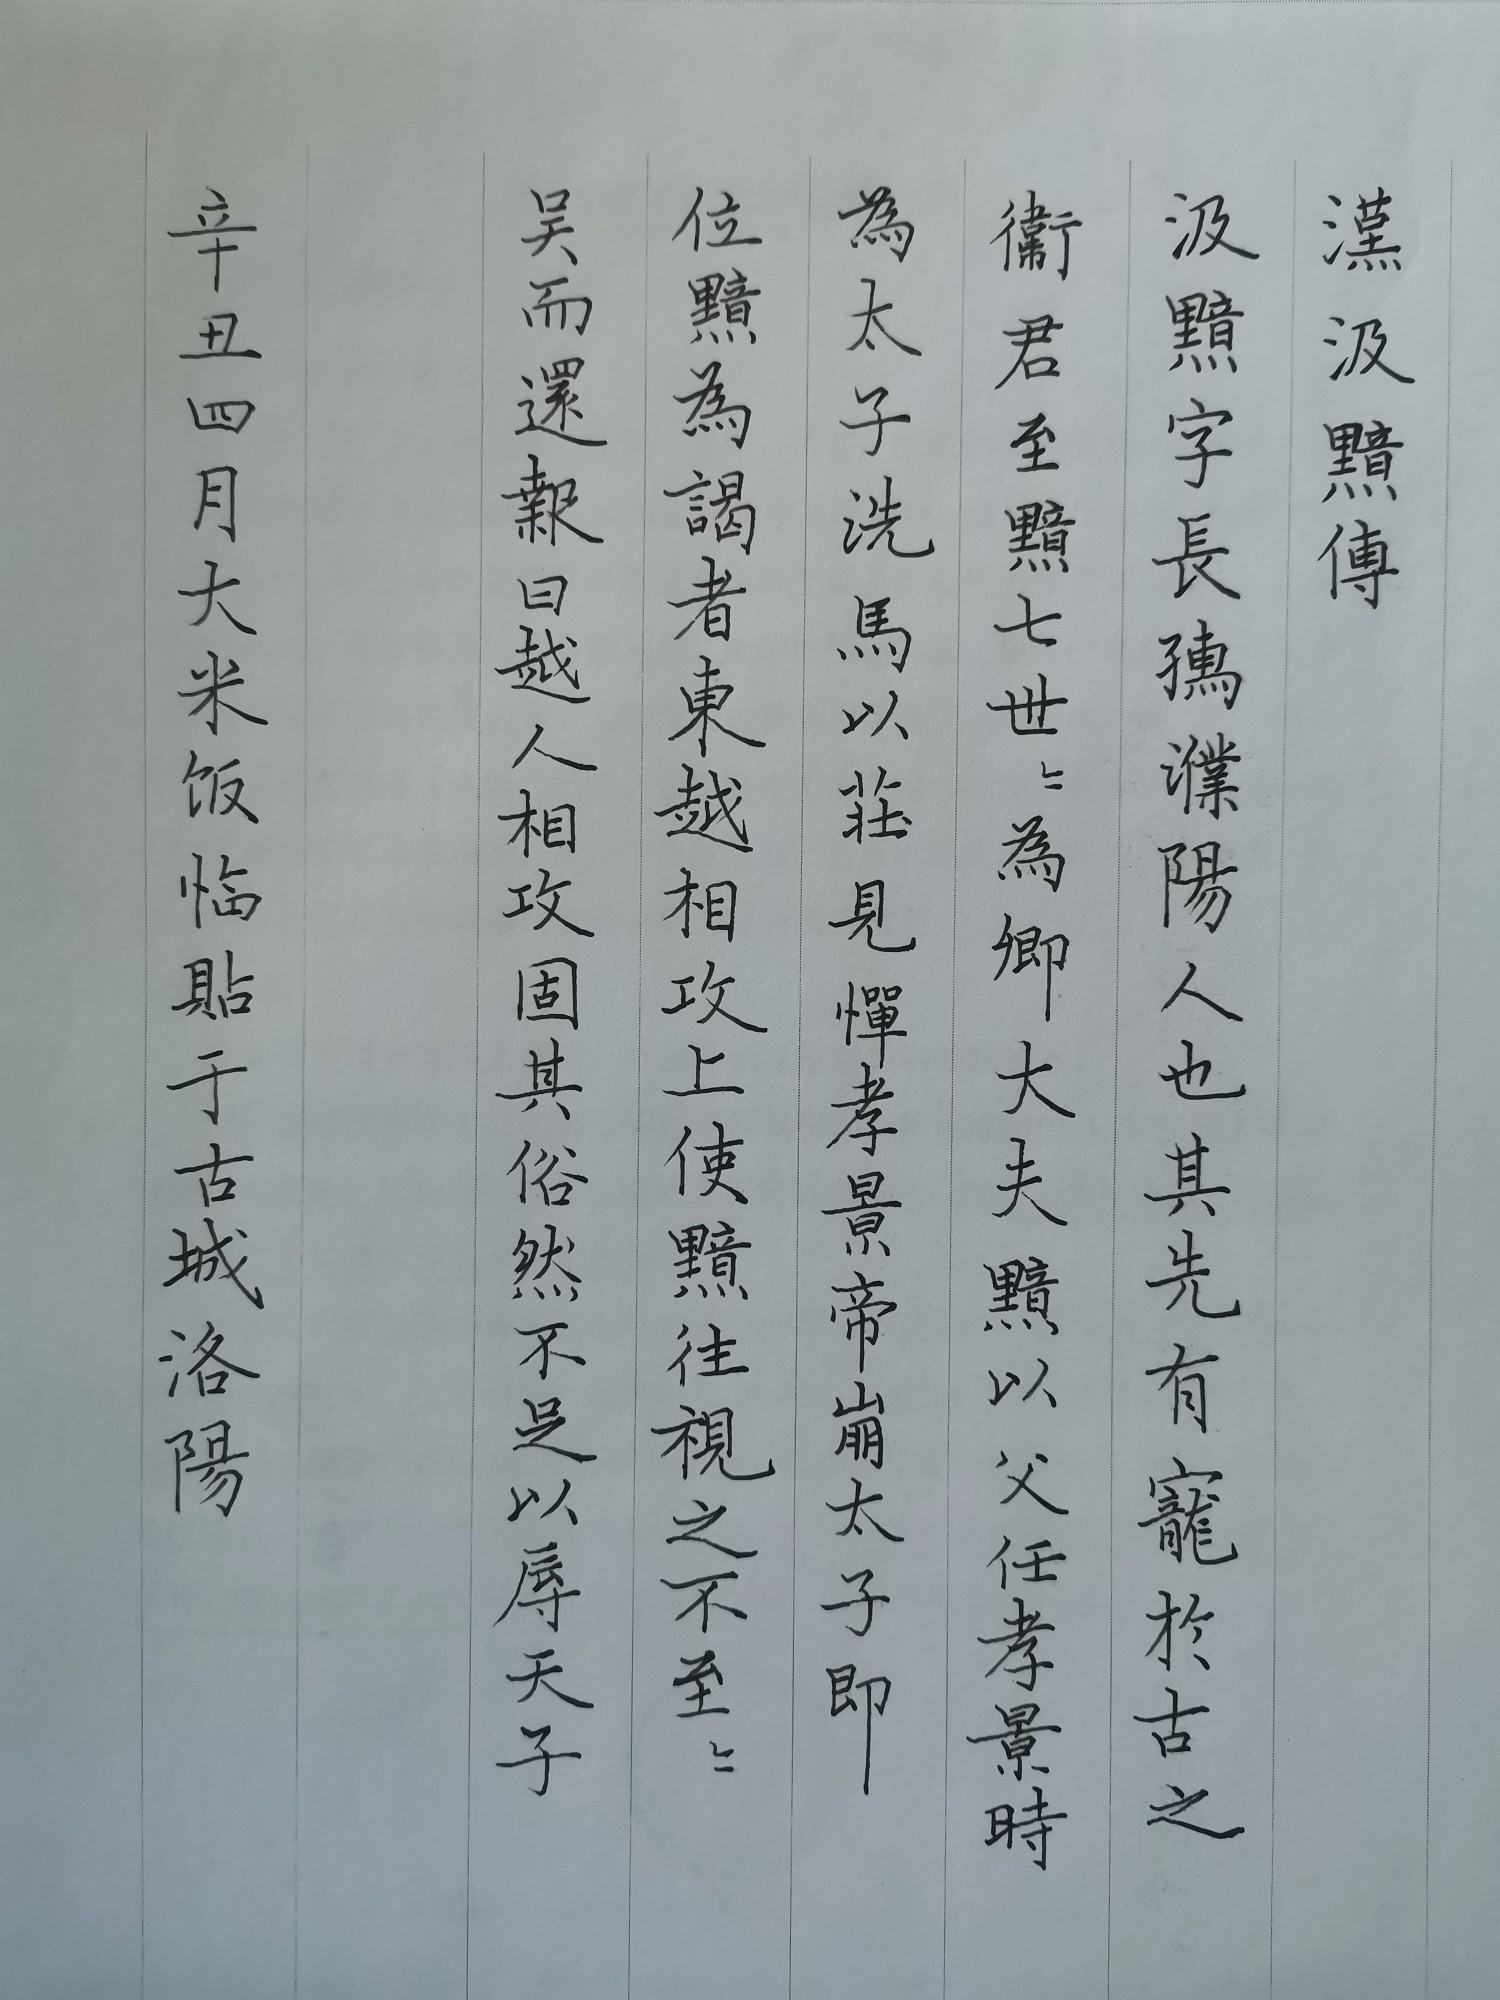 漢汲黯傳
汲黯字長孺濮陽人也其先有寵於古之
衞君至黯七世〻為卿大夫黯以父任孝景時
為太子洗馬以莊見憚孝景帝崩太子即
位黯為謁者東越相攻上使黯往視之不至〻
吴而還報曰越人相攻固其俗然不足以辱天子
辛丑四月大米饭临貼于古城洛陽